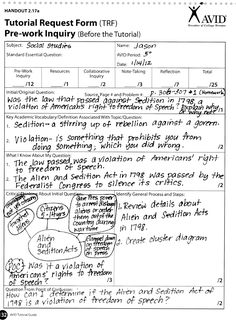 HANDOUT 2.17a
Tutorial Request Form (TRF)
Pre-work Inquiry (Before the Tutorial)
AVID
Subject: Social Studies
Name: Jason
Standard/Essential Question:
AVID Period: 5th
Date: 1/04/12
Pre-Work Inquiry
Resources
Collaborative Inquiry
Note-Taking
Reflection
Total
/12
/1
/2
/3
/7
/25
Initial/Original Question:
Source, Page # and Problem #: p. 306-307 #3 (Homework)
Was the law that passed against Sedition in 1798 a
violation of American's right to freedom of speech? Explain why
or why not? /1
Key Academic Vocabulary/Definition Associated with Topic/Question:
1. Sedition - a stirring up of rebellion against a govern.
2. Violation - is something that prohibits you from
doing something; which you did wrong. /2
What I Know About My Question:
1. The law passed was a violation of Americans' right
to freedom of speech.
2. The Alien and Sedition Act in 1798 was passed by the
Federalist Congress to silence its critics. /2
Critical Thinking About Initial Question:
Identify General Process and Steps:
Alien and Sedition Acts
1. Review details about
Alien and Sedition Acts
in 1798.
2. Create cluster diagram
Was it a violation of
Americans' rights to freedom
of speech? /3
/3
Question From Point of Confusion:
How can I determine if the Alien and Sedition Act of
1798 is a violation of freedom of speech? /2
32
AVID Tutorial Guide